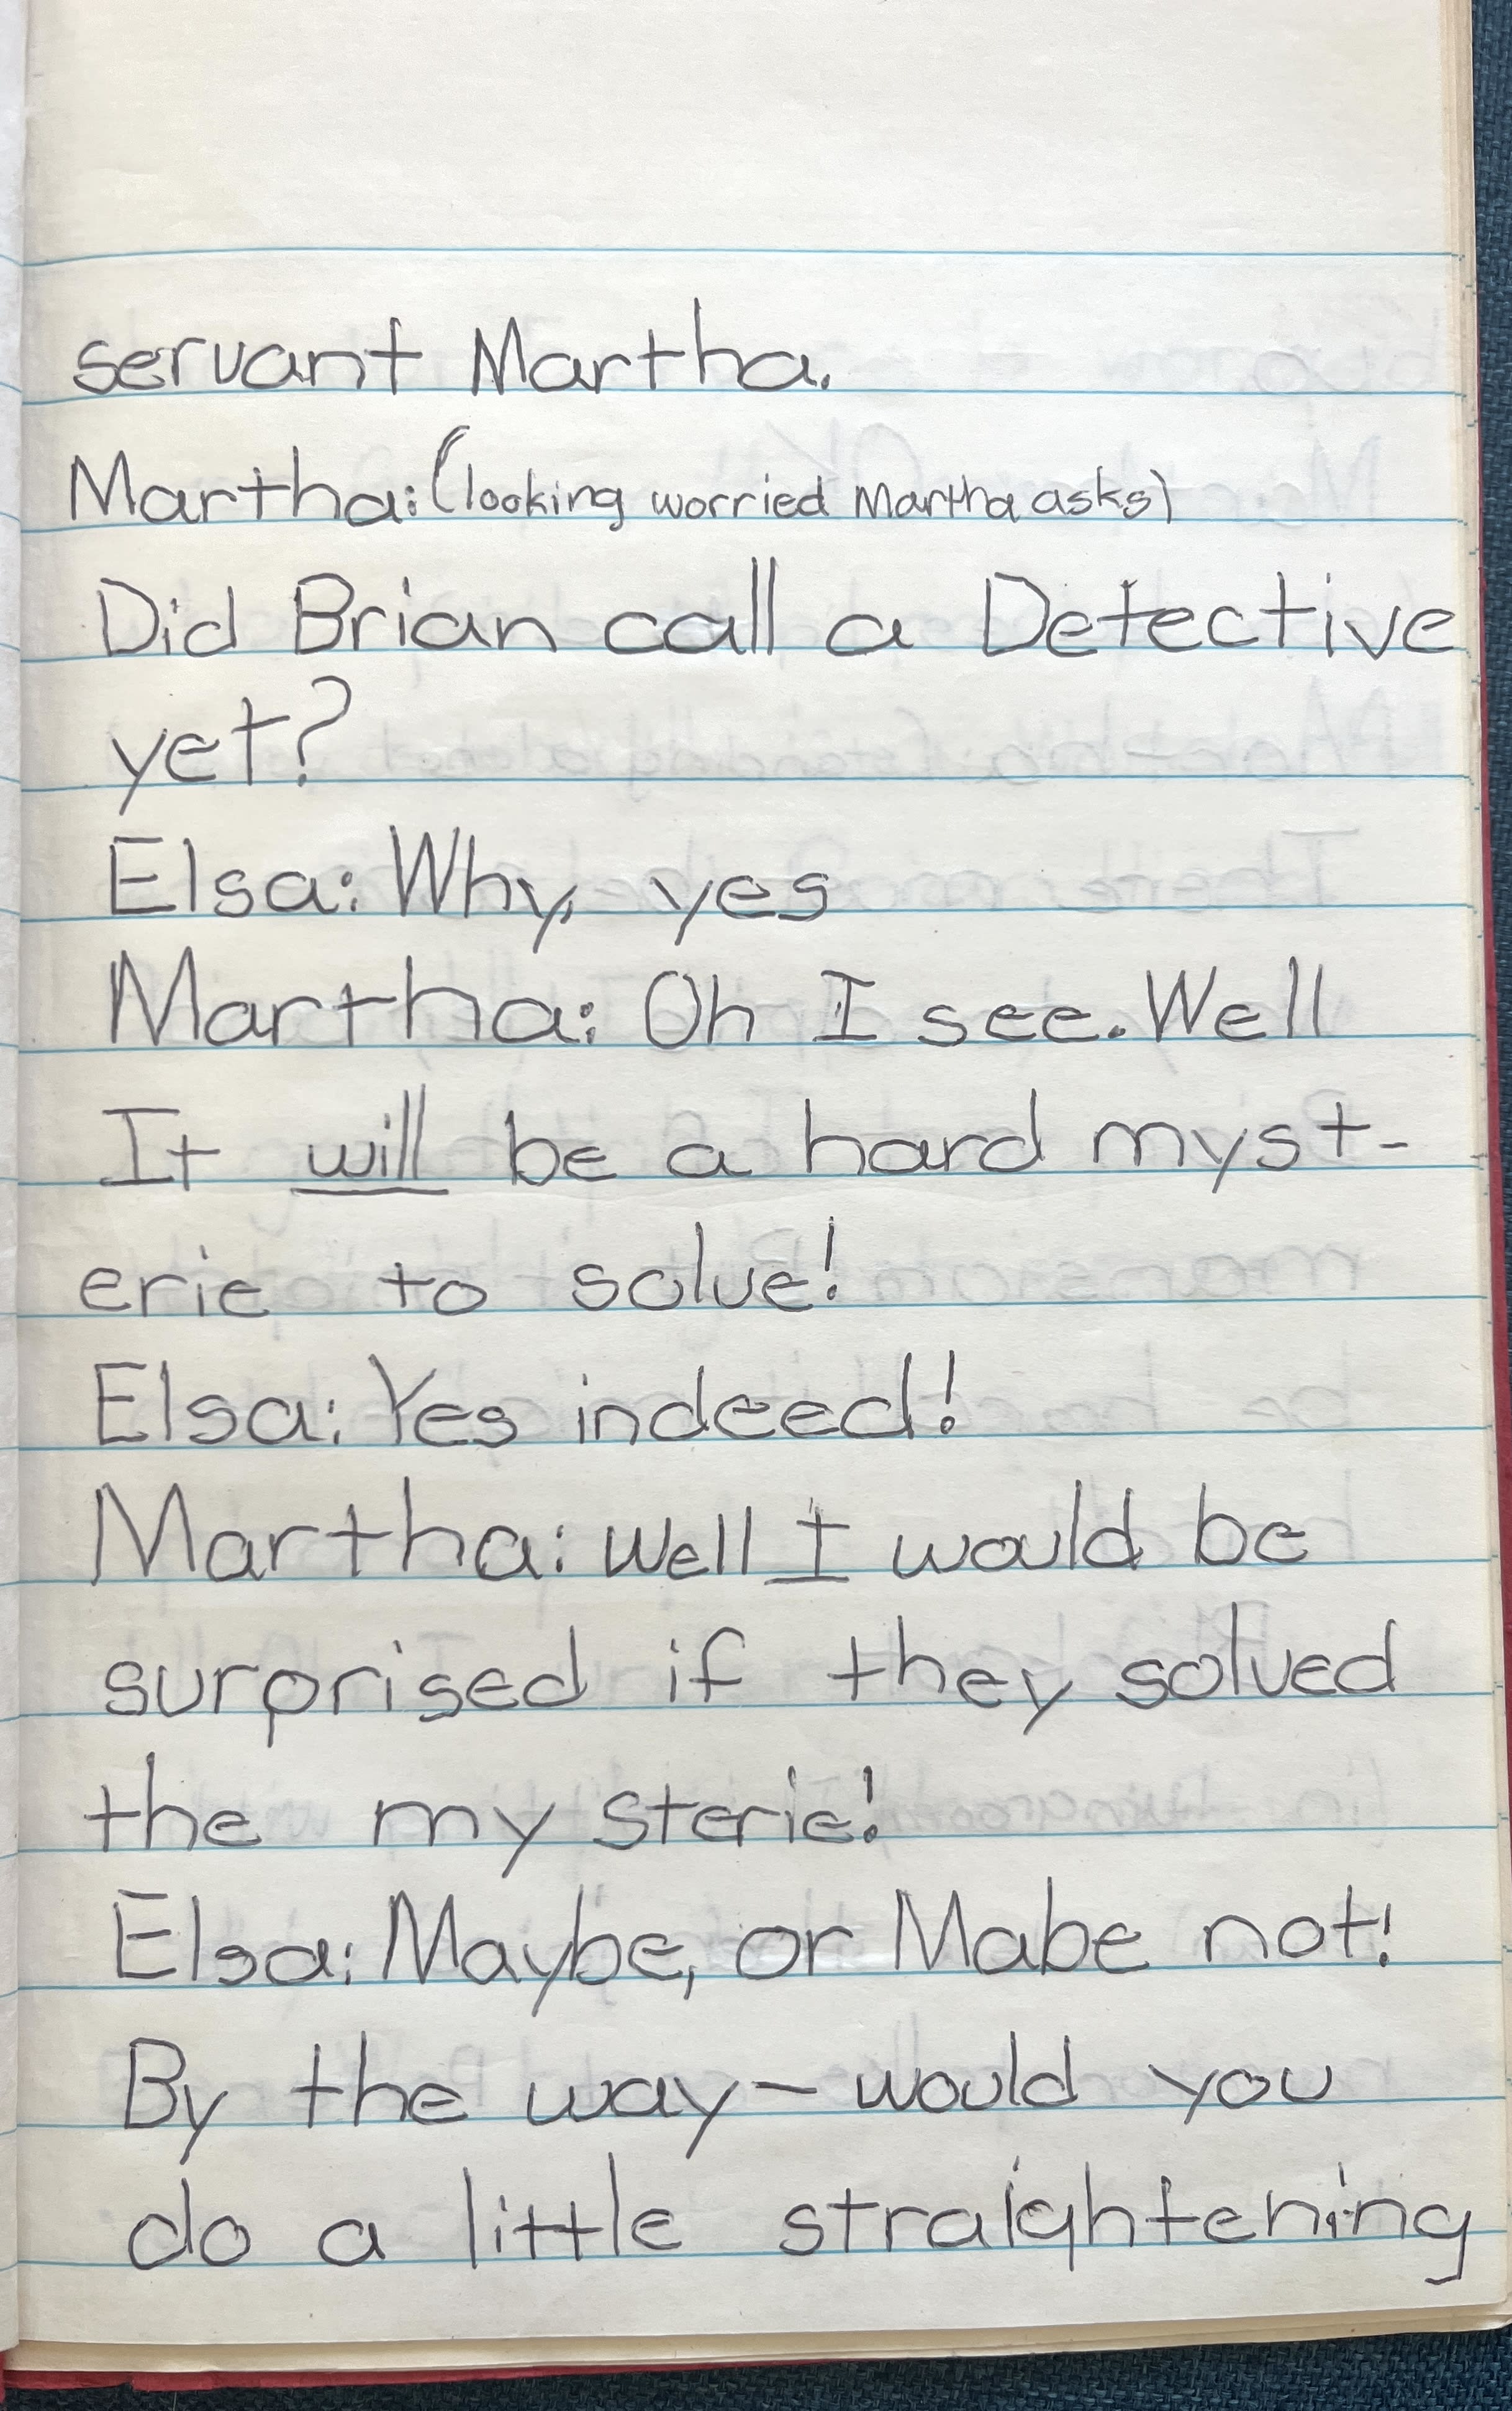 servant Martha.
Martha: (looking worried Martha asks)
Did Brian call a Detective
yet?
Elsa: Why, yes
Martha: Oh I see. Well
It will be a hard myst-
erie to solve!
Elsa: Yes indeed!
Martha: Well I would be
surprised if they solved
the my sterie!
Elsa: Maybe, or Mabe not!
By the way - would you
do a little straightening